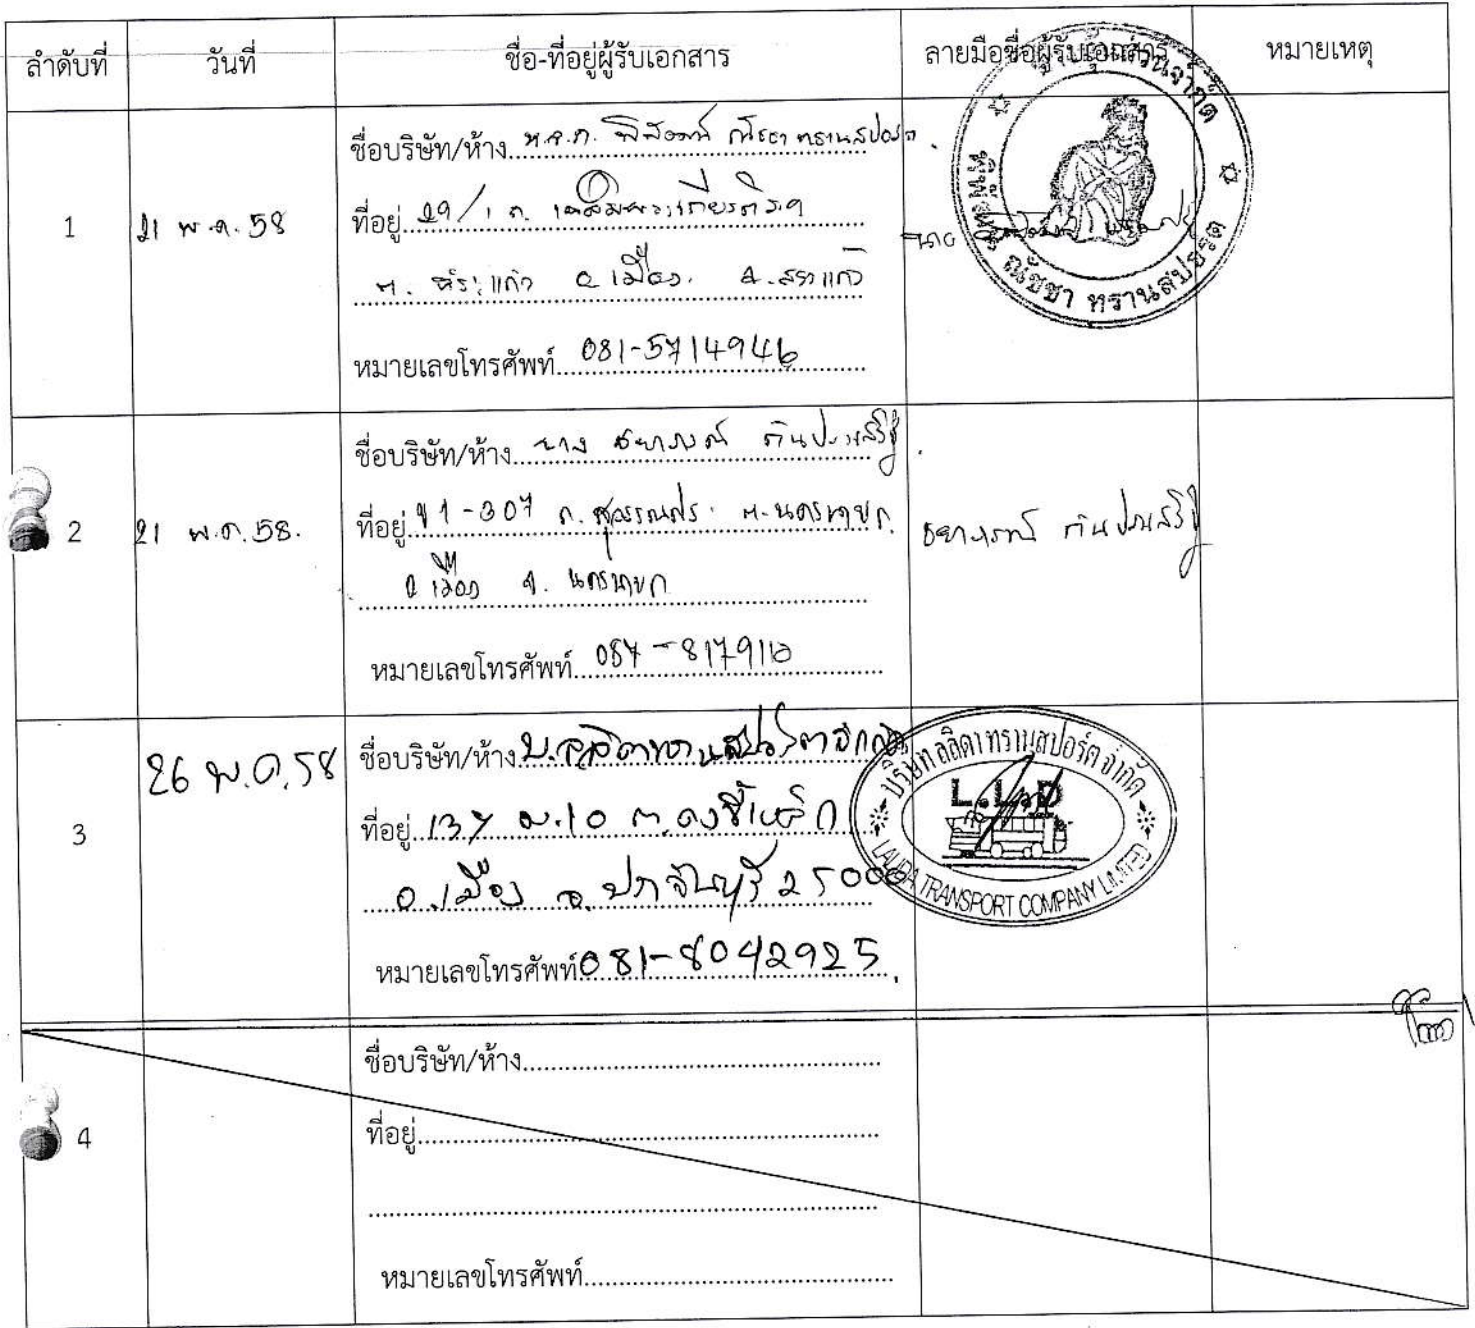 ลำดับที่ วันที่ ชื่อ-ที่อยู่ผู้รับเอกสาร ลายมือชื่อผู้รับเอกสาร หมายเหตุ
1 21 พ.ค. 58
ชื่อบริษัท/ห้าง ห.จ.ก. ณัชชา ทรานสปอร์ต
ที่อยู่ 29/1 ถ. เฉลิมพระเกียรติ
ต. สระแก้ว อ.เมือง จ.สระแก้ว
หมายเลขโทรศัพท์ 081-5714946
ห้างหุ้นส่วนจำกัด
ณัชชา ทรานสปอร์ต
2 21 พ.ค. 58.
ชื่อบริษัท/ห้าง นาง
ที่อยู่ ถ. สุวรรณศร ต.นครนายก
อ.เมือง จ. นครนายก
หมายเลขโทรศัพท์
3 26 พ.ค. 58
ชื่อบริษัท/ห้าง บ.ลลิดาทรานสปอร์ตจำกัด
ที่อยู่ 137 ม.10 ต.ดงขี้เหล็ก
อ.เมือง จ.ปราจีนบุรี 25000
หมายเลขโทรศัพท์ 081-8042925
บริษัท ลลิดา ทรานสปอร์ต จำกัด
L.L.D
LALIDA TRANSPORT COMPANY LIMITED
4
ชื่อบริษัท/ห้าง
ที่อยู่
หมายเลขโทรศัพท์